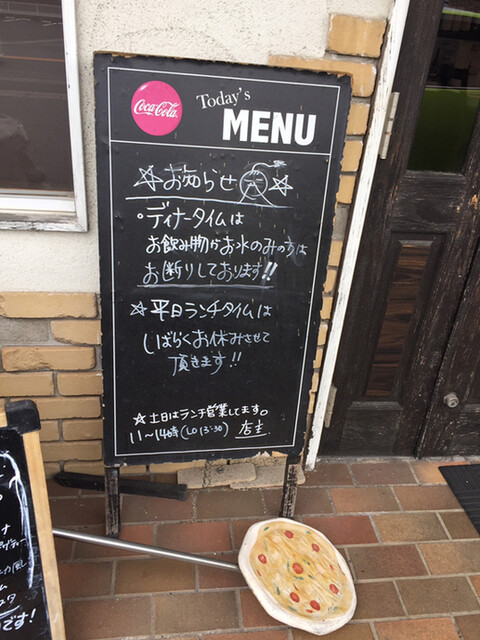 Coca-Cola
Today's
MENU
☆お知らせ☆
・ディナータイムは
お飲み物がお水のみの方は
お断りしております!!
☆平日ランチタイムは
しばらくお休みさせて
頂きます!!
☆土日はランチ営業してます。
11〜14時(LO13:30) 店主
です!